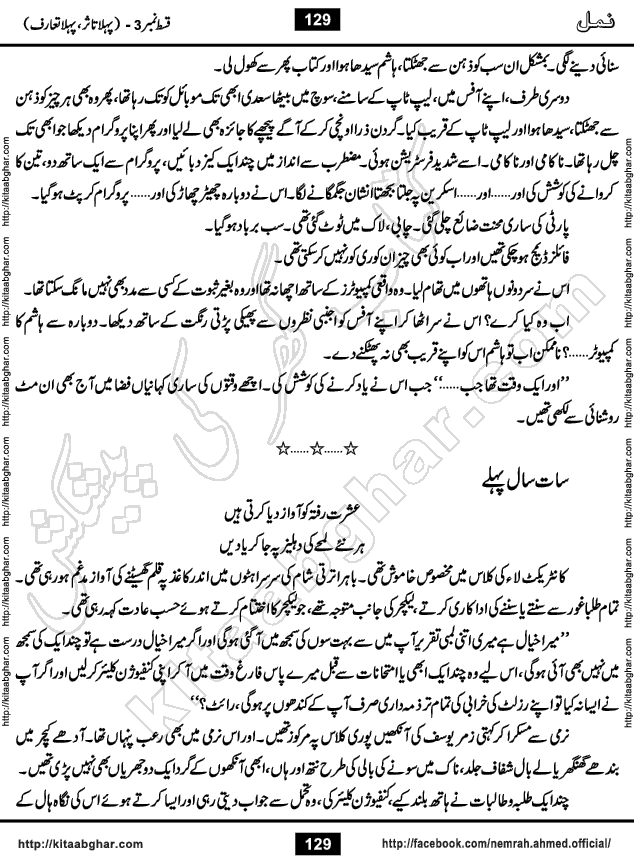 نمل
129
قسط نمبر 3 - (پہلا تاثر، پہلا تعارف)
سنائی دینے لگی۔ بمشکل ان سب کو ذہن سے جھٹکتا، ہاشم سیدھا ہوا اور کتاب پھر سے کھول لی۔
دوسری طرف، اپنے آفس میں، لیپ ٹاپ کے سامنے، سوچ میں بیٹھا سعدی ابھی تک موبائل کو تک رہا تھا، پھر وہ بھی ہر چیز کو ذہن
سے جھٹکتا، سیدھا ہوا اور لیپ ٹاپ کے قریب کیا۔ گردن ذرا اونچی کر کے آگے پیچھے کا جائزہ بھی لے لیا اور پھر اپنا پروگرام دیکھا جو ابھی تک
چل رہا تھا۔ ناکامی اور ناکامی۔ اسے شدید فرسٹریشن ہوئی۔ مضطرب سے انداز میں چند ایک کیز دبائیں، پروگرام سے ایک ساتھ دو، تین کام
کروانے کی کوشش کی اور...... اور...... اسکرین پہ جلتا بجھتا نشان جگمگانے لگا۔ اس نے دوبارہ چھیڑ چھاڑ کی اور...... پروگرام کرپٹ ہو گیا۔
پارٹی کی ساری محنت ضائع چلی گئی۔ چابی، لاک میں ٹوٹ گئی تھی۔ سب برباد ہو گیا۔
فائلز ڈیمج ہو چکی تھیں اور اب کوئی بھی چیز ان کو ری کور نہیں کر سکتی تھی۔
اس نے سر دونوں ہاتھوں میں تھام لیا۔ وہ واقعی کمپیوٹرز کے ساتھ اچھا نہ تھا اور وہ بغیر ثبوت کے کسی سے مدد بھی نہیں مانگ سکتا تھا۔
اب وہ کیا کرے؟ اس نے سر اٹھا کر اپنے آفس کو اجنبی نظروں سے پھیکی پڑتی رنگت کے ساتھ دیکھا۔ دوبارہ سے ہاشم کا
کمپیوٹر......؟ ناممکن اب تو ہاشم اس کو اپنے قریب بھی نہ پھٹکنے دے۔
”اور ایک وقت تھا جب......“ جب اس نے یاد کرنے کی کوشش کی۔ اچھے وقتوں کی ساری کہانیاں فضا میں آج بھی ان مٹ
روشنائی سے لکھی تھیں۔
☆......☆......☆
سات سال پہلے
عشرت رفتہ کو آواز دیا کرتی ہیں
ہر نئے لمحے کی دہلیز پہ جا کر یادیں
کانٹریکٹ لاء کی کلاس میں مخصوص خاموشی تھی۔ باہر اترتی شام کی سرسراہٹوں میں اندر کاغذ پہ قلم گھسیٹنے کی آواز مدغم ہو رہی تھی۔
تمام طلبا غور سے سنتے یا سننے کی اداکاری کرتے، لیکچرر کی جانب متوجہ تھے، جو لیکچر کا اختتام کرتے ہوئے حسب عادت کہہ رہی تھی۔
”میرا خیال ہے میری اتنی لمبی تقریر آپ میں سے بہت سوں کی سمجھ میں آ گئی ہو گی اور اگر میرا خیال درست ہے تو چند ایک کی سمجھ
میں نہیں بھی آئی ہو گی، اس لیے وہ چند ایک ابھی یا امتحانات سے قبل میرے پاس فارغ وقت میں آ کر اپنی کنفیوژن کلیئر کر لیں اور اگر آپ
نے ایسا نہ کیا تو اپنے رزلٹ کی خرابی کی تمام تر ذمہ داری صرف آپ کے کندھوں پر ہو گی، رائٹ؟“
نرمی سے مسکرا کر کہتی زمر یوسف کی آنکھیں پوری کلاس پہ مرکوز تھیں۔ اور اس نرمی میں بھی رعب پنہاں تھا۔ آدھے کیچر میں
بندھے گھنگھریالے بال شفاف جلد، ناک میں سونے کی بالی کی طرح نتھ اور ہاں، ابھی آنکھوں کے گرد ایک دو جھریاں بھی نہیں پڑی تھیں۔
چند ایک طلبہ و طالبات نے ہاتھ بلند کیے، کنفیوژن کلیئر کی، وہ تحمل سے جواب دیتی رہی اور ایسا کرتے ہوئے اس کی نگاہ ہال کے
http://kitaabghar.com
129
http://facebook.com/nemrah.ahmed.official/
http://kitaabghar.com http://kitaabghar.com http://kitaabghar.com http://kitaabghar.com http://kitaabghar.com http://kitaabghar.com
http://kitaabghar.com http://kitaabghar.com http://kitaabghar.com http://kitaabghar.com http://kitaabghar.com http://kitaabghar.com
کتاب گھر کی پیشکش
kitaabghar.com